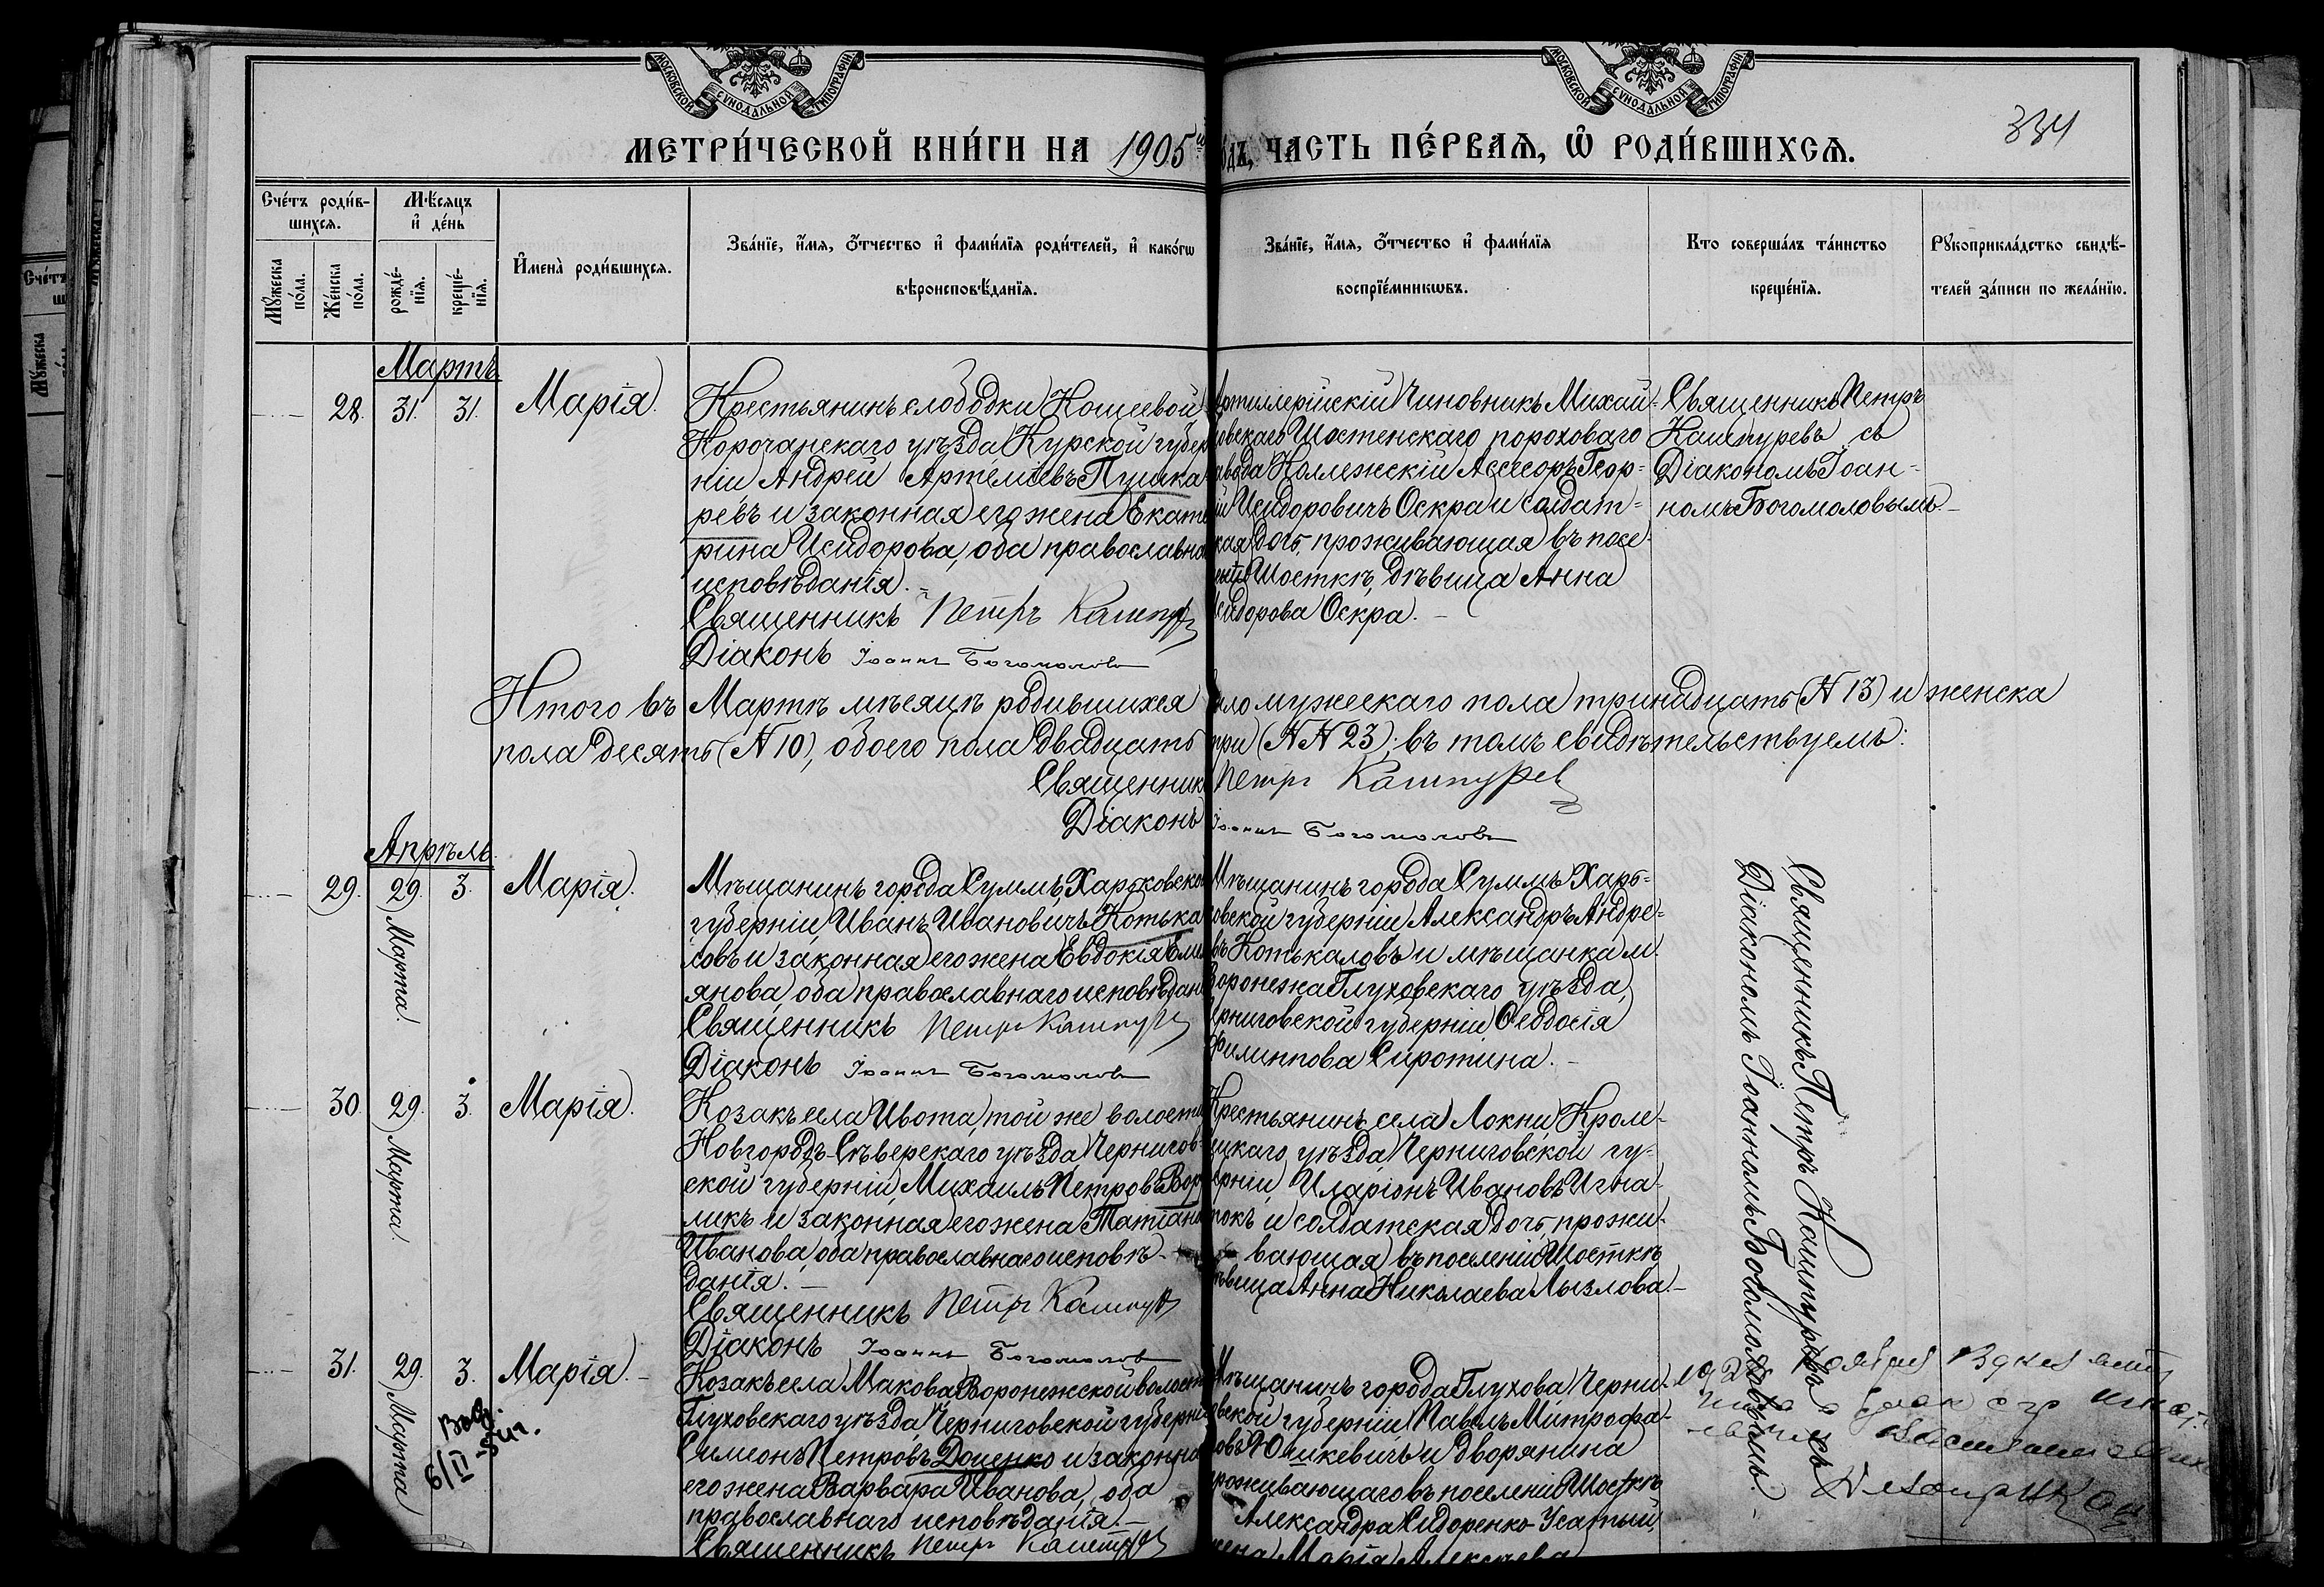 МОСКОВСКОЙ СѴНОДАЛЬНОЙ ТИПОГРАФІИ
МОСКОВСКОЙ СѴНОДАЛЬНОЙ ТИПОГРАФІИ
334
МЕТРИ́ЧЕСКОЙ КНИ́ГИ НА 1905 ЧАСТЬ ПЕ́РВАѦ, Ѡ РОДИ́ВШИХСѦ.
Сче́тъ роди́в-
шихсѧ.
Мѣ́сѧцъ
и҆ де́нь
Мꙋ́жеска
по́ла.
Же́нска
по́ла.
рожде́-
нїѧ.
креще́-
нїѧ.
И҆мена̀ роди́вшихсѧ.
Зва́нїе, и҆́мѧ, ѻ҆́тчество и҆ фами́лїѧ роди́телей, и҆ како́гѡ
вѣроисповѣ́данїѧ.
Зва́нїе, и҆́мѧ, ѻ҆́тчество и҆ фами́лїѧ
воспрїе́мникѡвъ.
Кто соверша́лъ та́инство
креще́нїѧ.
Рꙋкоприкла́дство свидѣ́-
телей за́писи по жела́нїю.
Мартъ
28. 31. 31. Марія.
Крестьянинъ слободки Кощеевой
Корочанскаго уѣзда Курской губер
ніи Андрей Артеміевъ Пушка
ревъ и законная его жена Екате
рина Исидорова, оба православна
исповѣданія.
Священникъ Петръ Кашпур
Діаконъ Іоаннъ Богомоловъ
Артиллерійскій Чиновникъ Михай-
ловскаго Шостенскаго пороховаго
завода Коллежскій Ассесоръ Геор-
ій Исидоровичъ Оскра и солдат-
ская дочь, проживающая въ посе-
Шосткѣ, дѣвица Анна
сидорова Оскра.
Священникъ Петръ
Кашпуревъ съ
Діакономъ Іоан-
номъ Богомоловымъ
Итого въ Мартѣ мѣсяцѣ родившихся было мужескаго пола тринадцать (N 13) и женска
пола десять (N 10), обоего пола двадцать три (NN 23); въ томъ свидѣтельствуемъ:
Священникъ Петръ Кашпурев
Діаконъ Іоаннъ Богомоловъ
Апрѣль
29. 29. Марта. 3. Марія.
Мѣщанинъ города Суммъ, Харьковской
губерніи, Иванъ Ивановичъ Котька
ловъ и законная его жена Евдокія Емел
янова, оба православнаго исповѣдан
Священникъ Петръ Кашпур
Діаконъ Іоаннъ Богомоловъ
Мѣщанинъ города Суммъ Харь-
ковской губерніи Александръ Андре-
въ Котькаловъ и мѣщанка м.
Воронежа Глуховскаго уѣзда,
Черниговской губерніи Ѳеодосія
Филиппова Сиротина.
Священникъ Петръ Кашпуревъ съ
Діакономъ Іоанномъ Богомоловымъ.
30. 29. Марта. 3. Марія.
Козакъ села Ивота, той же волости
Новгородъ-Сѣверскаго уѣзда, Чернигов-
ской губерніи, Михаилъ Петровъ Вор
ликъ и законная его жена Татіана
Иванова, оба православнаго исповѣ-
данія.
Священникъ Петръ Кашпур
Діаконъ Іоаннъ Богомолов
Крестьянинъ села Локни, Кроле-
вецкаго уѣзда Черниговской гу-
берніи, Иларіонъ Ивановъ Игна-
токъ и солдатская дочь, прожи-
вающая въ поселеніи Шосткѣ,
дѣвица Анна Николаева Лызлова.
31. 29. Марта 3. Марія.
6/II
Козакъ села Макова Воронежской волости
Глуховскаго уѣзда, Черниговской губерні
Симеонъ Петровъ Доценко и законна
его жена Варвара Иванова, оба
православнаго исповѣданія.
Священникъ Петръ Кашпур
Мѣщанинъ города Глухова Черни-
говской губерніи Павелъ Митрофа-
новъ Юшкевичъ и дворянина
проживающаго въ поселеніи Шосткѣ
Александра Сидоренко-Усатый,
жена Марія Алексѣева